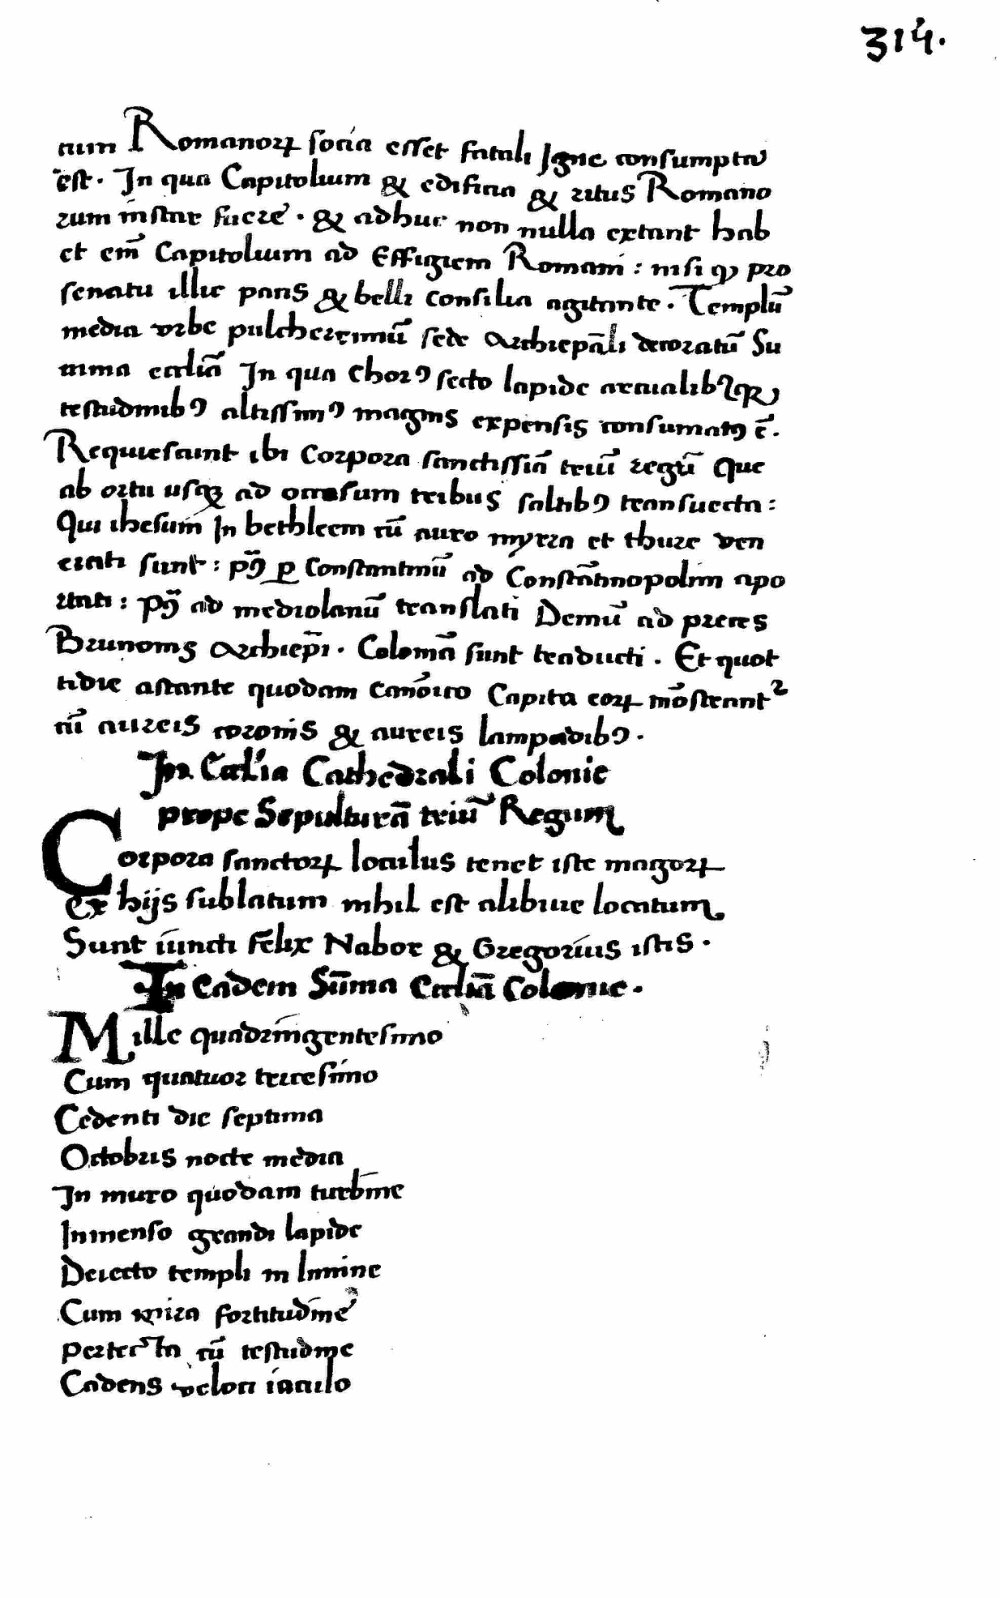 314.
cum Romanorꝝ socia esset fatali Igne consumpta
est. In qua Capitolium & edificia & ritus Romano
rum instar fuere. & adhuc non nulla extant hab
et em̄ Capitolium ad Effigiem Romani: nisi ꝙ pro
senatu illic pacis & belli consilia agitante. Templū
media vrbe pulcherrimū sede Archiepāli decoratū Su
mma eccliā In qua Chorꝰ secto lapide arcualibꝰqꝫ
testudinibꝰ altissimꝰ magnis expensis consumatꝰ ē.
Requiescunt ibi Corpora sanctissiā triū regū Que
ab ortu usqꝫ ad occasum tribus saltibꝰ transuecta:
Qui ihesum In bethleem cū auro myrra et thure ven
erati sunt: pꝰ ꝑ Constantinū ad Constātinopolim apo
rtati: pꝰ ad mediolanū translati Demū ad preces
Brunonis Archiepi. Colomā sunt traducti. Et quot
tidie astante quodam canōico Capita eorꝝ mōstrant᷑
cū aureis coronis & aureis lampadibꝰ.
In Eccl'ia Cathedrali Colonie
prope Sepulturā triū Regum
Corpora sanctorꝝ loculus tenet iste magorꝝ
ex hijs sublatum nihil est alibiue locatum
Sunt iuncti Felix Nabor & Gregorius istis.
In Eadem Sūma Eccliā Colonie.
Mille quadringentesimo
Cum quatuor tricesimo
Cedenti die septima
Octobris nocte media
In muro quodam turbine
Inmenso grandi lapide
Deiecto templi in limine
Cum mira fortitudine
Pertecta cū testudine
Cadens veloci iaculo